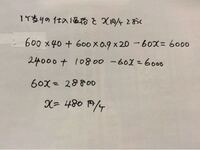 1T当りの仕入価格を x円/Tとおく
600×40 + 600×0.9×20 - 60x = 6000
24000 + 10800 - 60x = 6000
60x = 28800
x = 480 円/T